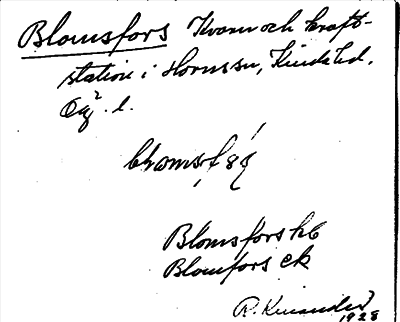 Blomsfors Kvarn och kraft-
station i Hornssn, Kinds hd,
Ög. l.
Blomsfors hb
Blomfors ek
R. Kinander
1928